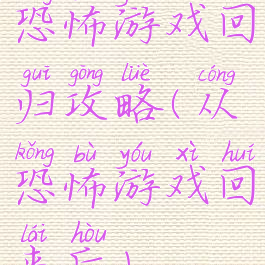 恐怖游戏回
guī gōng lüè cóng
归攻略(从
kǒng bù yóu xì huí
恐怖游戏回
lái hòu
来后)